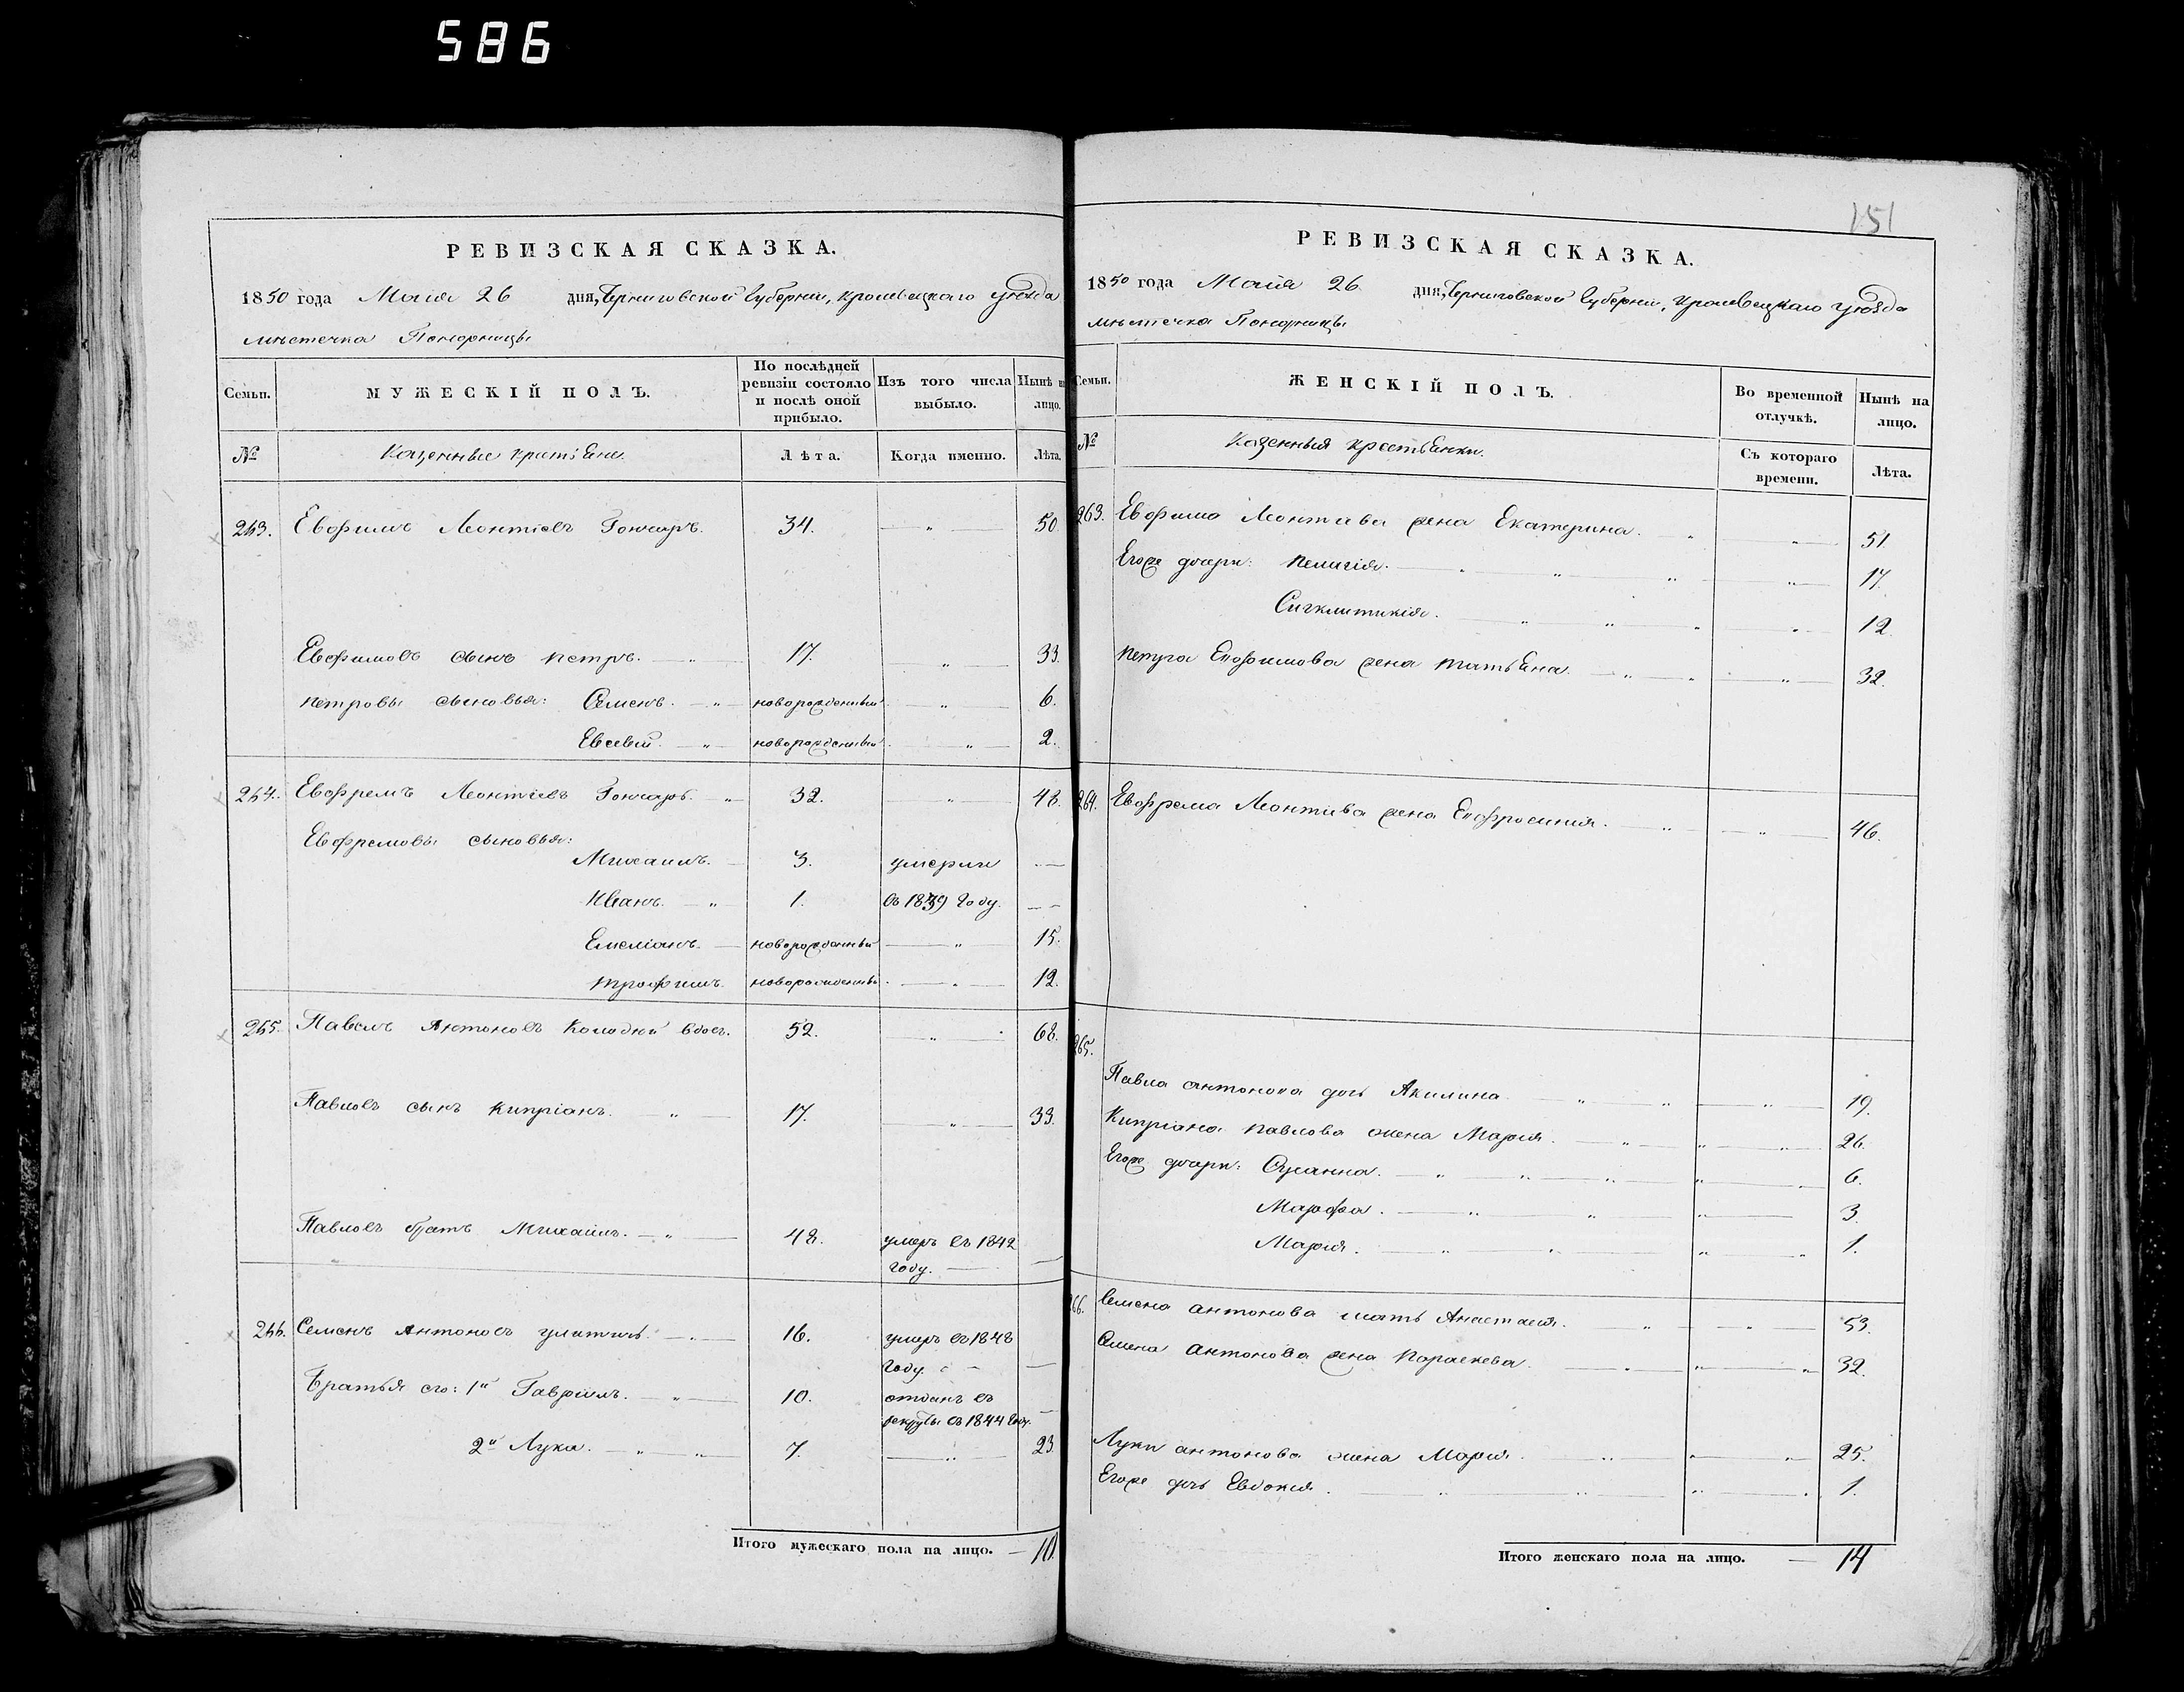 586
РЕВИЗСКАЯ СКАЗКА.
1850 года Маія 26 дня, Черниговской Губерніи, Кролевецкаго уѣзда
мѣстечка Понорницы
Семьи. МУЖЕСКІЙ ПОЛЪ. По послѣдней ревизіи состояло и послѣ оной прибыло. Изъ того числа выбыло. Нынѣ на лицо.
№ Казенные крестьяне. Лѣта. Когда именно. Лѣта.
263. Евфимъ Леонтіевъ Гончаръ. 34. — " — 50
Евфимовъ сынъ Петръ. — " — 17. " — 33.
Петровы сыновья: Семенъ. — " — новорожденный — " — 6.
Евсевій. — " — новорожденный. — " — 2.
264. Евфремъ Леонтіевъ Гончаръ. — " 32. — " — 48.
Евфремовы сыновья:
Михаилъ. — 3. умерли —
Иванъ. — " 1. въ 1839 году. — —
Емеліанъ. — новорожденный — " — 15.
Трофимъ. новорожденный. — " — 12.
265. Павелъ Антоновъ Колодкій вдов. 52. — " — 68.
Павловъ сынъ Кипріанъ. — " — 17. — " — 33.
Павловъ братъ Михаилъ. — " — 48. умеръ въ 1842
году. — —
266. Семенъ Антоновъ — " — 16. умеръ въ 1848
году. — —
Братья его: 1й Гавріилъ. — " — 10. отданъ въ
рекруты въ 1844 году. —
2й Лука. — " — " 7. — " — 23.
Итого мужескаго пола на лицо. — 10.
151
РЕВИЗСКАЯ СКАЗКА.
1850 года Маія 26 дня, Черниговской Губерніи, Кролевецкаго уѣзда
мѣстечка Понорницы
Семьи. ЖЕНСКІЙ ПОЛЪ. Во временной отлучкѣ. Нынѣ на лицо.
№ Казенныя крестьянки. Съ котораго времени. Лѣта.
263. Евфима Леонтіева жена Екатерина. — " — " — 51.
Егоже дочери: Пелагія. — " — " — " — " — 17.
Сигклитикія. — " — " — " — 12.
Петра Евфимова жена Татьяна. — " — " — " — 32.
264. Евфрема Леонтіева жена Евфросинія. — " — " — 46.
265.
Павла Антонова дочь Акилина — " — " — " — 19.
Кипріана Павлова жена Марія. — " — " — " — 26.
Егоже дочери: Сусанна. — " — " — " — " — 6.
Марфа. — " — " — " — 3.
Марія. — " — " — " — " 1.
266. Семена Антонова мать Анастасія. — " — " — 53.
Семена Антонова жена Параскева. — " — " — " 32.
Луки Антонова жена Марія. — " — " — " 25.
Егоже дочь Евдокія. — " — " — " — " 1.
Итого женскаго пола на лицо. — 14